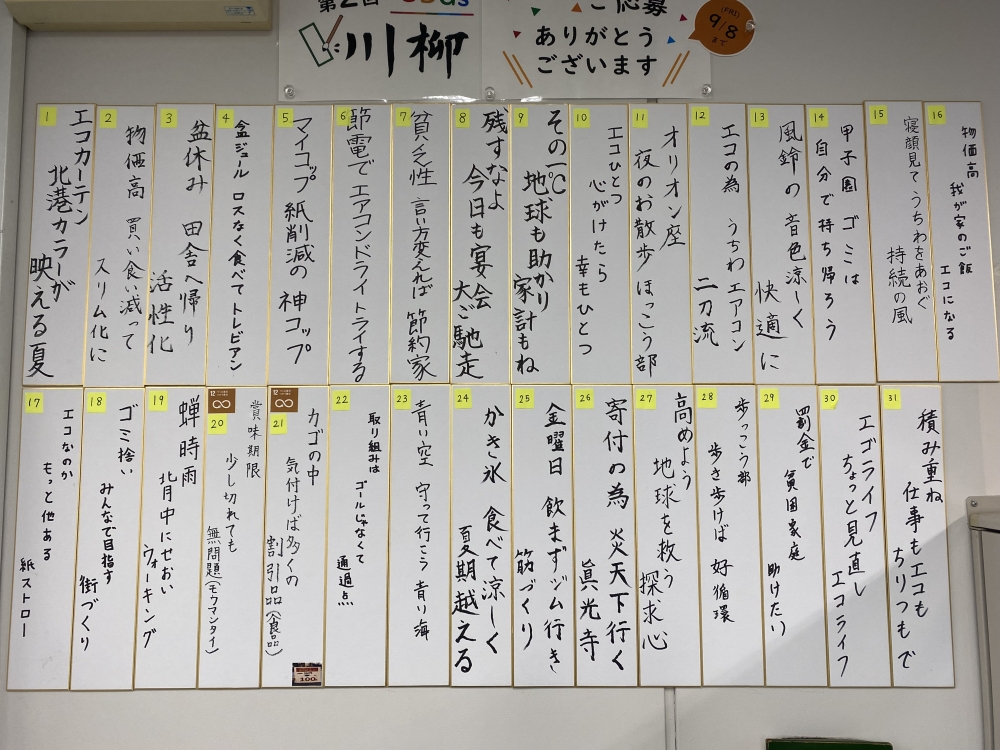 第2回
SDGs
川柳
ご応募
ありがとう
ございます
(FRI)
9/8
まで
1
エコカーテン
北港カラーが
映える夏
2
物価高 買い食い減って
スリム化に
3
盆休み 田舎へ帰り
活性化
4
盆ジュール ロスなく食べて トレビアン
5
マイコップ 紙削減の 神コップ
6
節電で エアコンドライ トライする
7
貧乏性 言い方変えれば 節約家
8
残すなよ
今日も宴会
大ご馳走
9
その一℃
地球も助かり
家計もね
10
エコひとつ
心がけたら
幸もひとつ
11
オリオン座
夜のお散歩 ほっこう部
12
エコの為 うちわ エアコン
二刀流
13
風鈴の 音色涼しく
快適に
14
甲子園 ゴミは
自分で持ち帰ろう
15
寝顔見て うちわをあおぐ
持続の風
16
物価高
我が家のご飯
エコになる
17
エコなのか
もっと他ある
紙ストロー
18
ゴミ拾い みんなで目指す
街づくり
19
蝉時雨
北月中にせおい
ウォーキング
12
20
賞味期限
少し切れても
無問題(モウマンタイ)
12
21
カゴの中
気付けば多くの
割引品(食品)
22
取り組みは ゴールじゃなくて
通過点
23
青い空 守って行こう 青い海
24
かき氷 食べて涼しく
夏期越える
25
金曜日 飲まずジム行き
筋づくり
26
寄付の為 炎天下行く
眞光寺
27
高めよう
地球を救う
探求心
28
歩っこう部
歩き歩けば 好循環
29
罰金で 貧困家庭
助けたり
30
エゴライフ
ちょっと見直し
エコライフ
31
積み重ね
仕事もエコも
ちりつもで